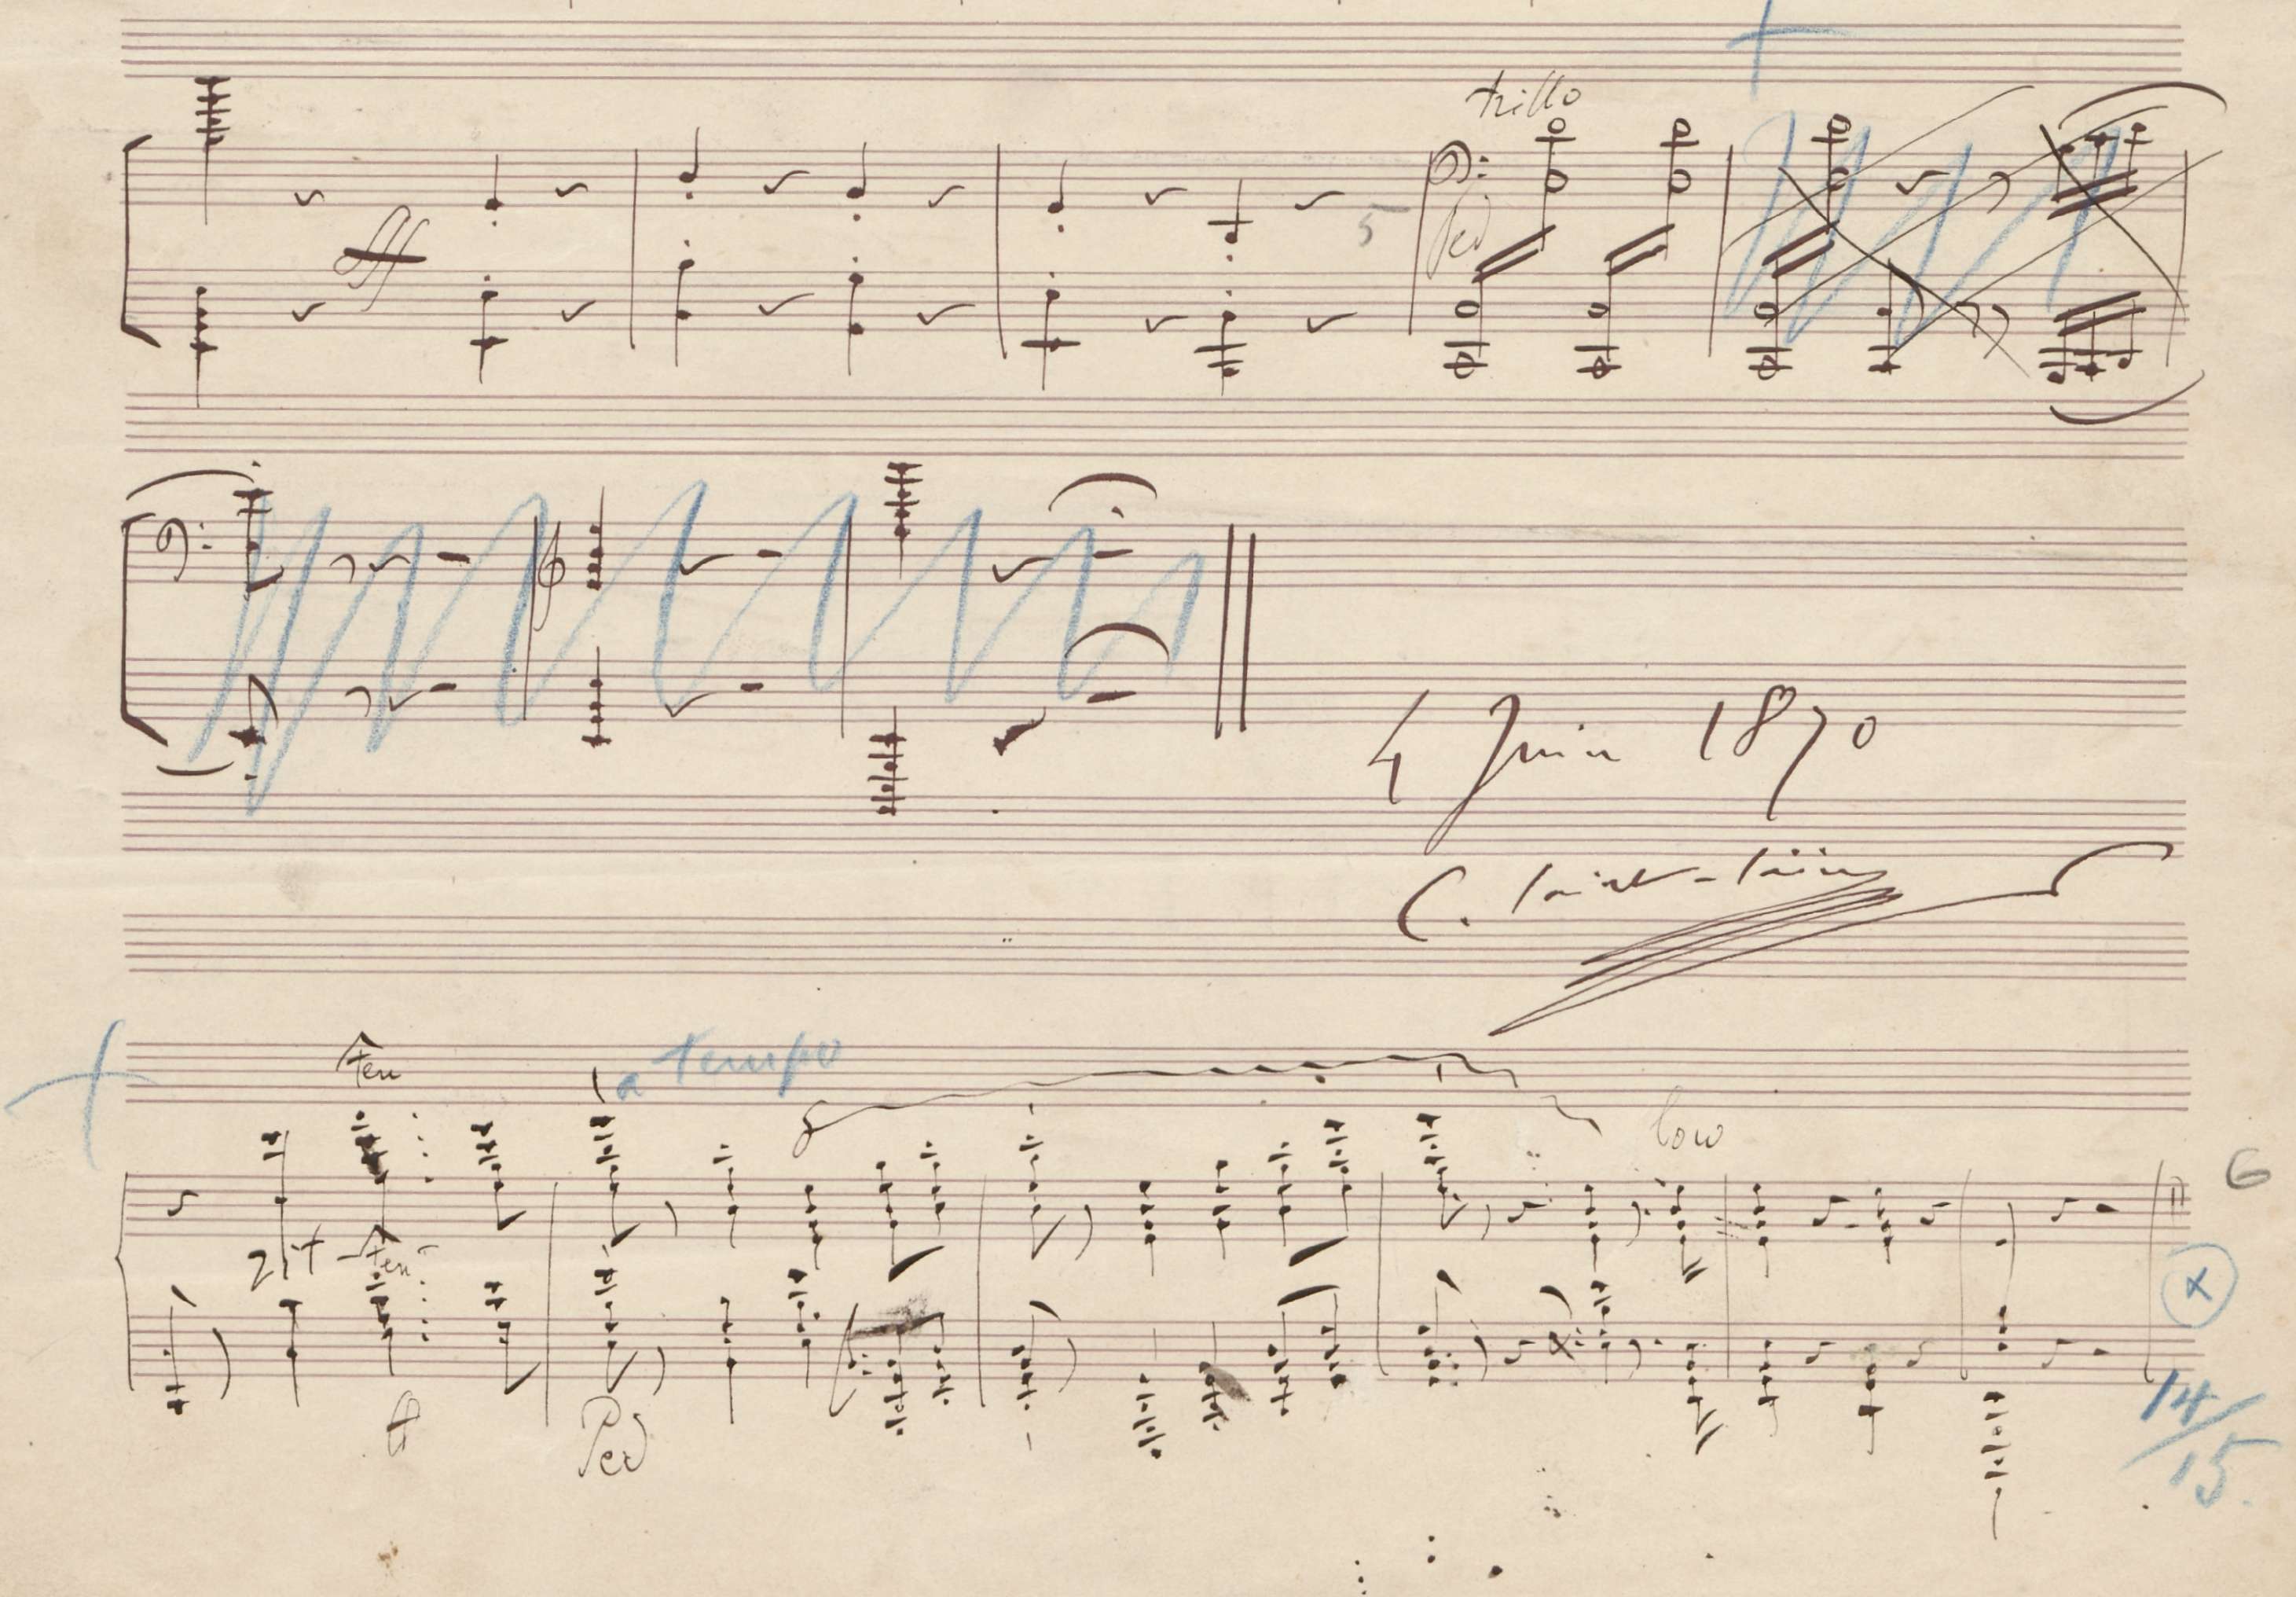 trillo
ff
5
Ped
4 Juin 1870
C. Saint-Saëns
ten
a tempo
8
loco
6
ten
Ped
14/15